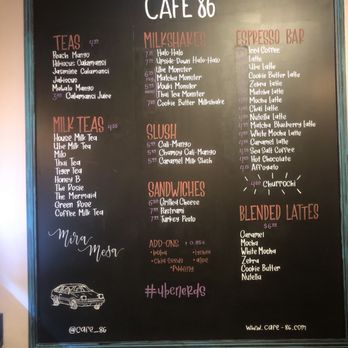 CAFE 86
TEAS 4.99
Peach Mango
Hibiscus Calamansi
Jasmine Calamansi
Jahiscus
Midnite Mango
3.99 Calamansi Juice
MILK TEAS 4.99
House Milk Tea
Ube Milk Tea
Milo
Thai Tea
Tiger Tea
Honey B
The Rosie
The Mermaid
Green Rose
Coffee Milk Tea
Mira
Mesa
@cafe_86
MILKSHAKES
Halo Halo
Upside Down Halo-Halo
Ube Monster
Matcha Monster
Rocky Monster
Thai Tea Monster
Cookie Butter Milkshake
SLUSH
Cali-Mango
Chamoy Cali-Mango
Caramel Milk Slush
SANDWICHES
Grilled Cheese
Pastrami
Turkey Pesto
ADD-ONS + 0.85¢
• boba • lychee
• chia seeds • aloe
• pudding
#ubenerds
ESPRESSO BAR
Iced Coffee
Latte
Ube Latte
Cookie Butter Latte
Zebra Latte
Matcha Latte
Mocha Latte
Chai Latte
Nutella Latte
Matcha Blueberry Latte
White Mocha Latte
Caramel Latte
Sea Salt Coffee
Hot Chocolate
Affogato
Churrochi
BLENDED LATTES
Caramel
Mocha
White Mocha
Zebra
Cookie Butter
Nutella
www.cafe-86.com